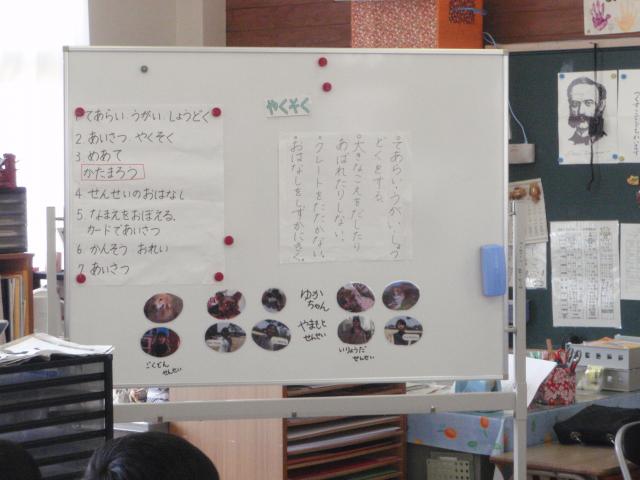 1. てあらい.うがい.しょうどく
2. あいさつ やくそく
3 めあて
かたまろう
4. せんせいのおはなし
5. なまえをおぼえる、
カードであいさつ
6. かんそう おれい
7. あいさつ
やくそく
○てあらい・うがい・しょう
どくをする。
○大きなこえをだしたり
あばれたりしない。
○クレートをたたかない。
○おはなしをしずかにきく。
ゆか
ちゃん
やまもと
せんせい
いりょうだ
せんせい
せんせい